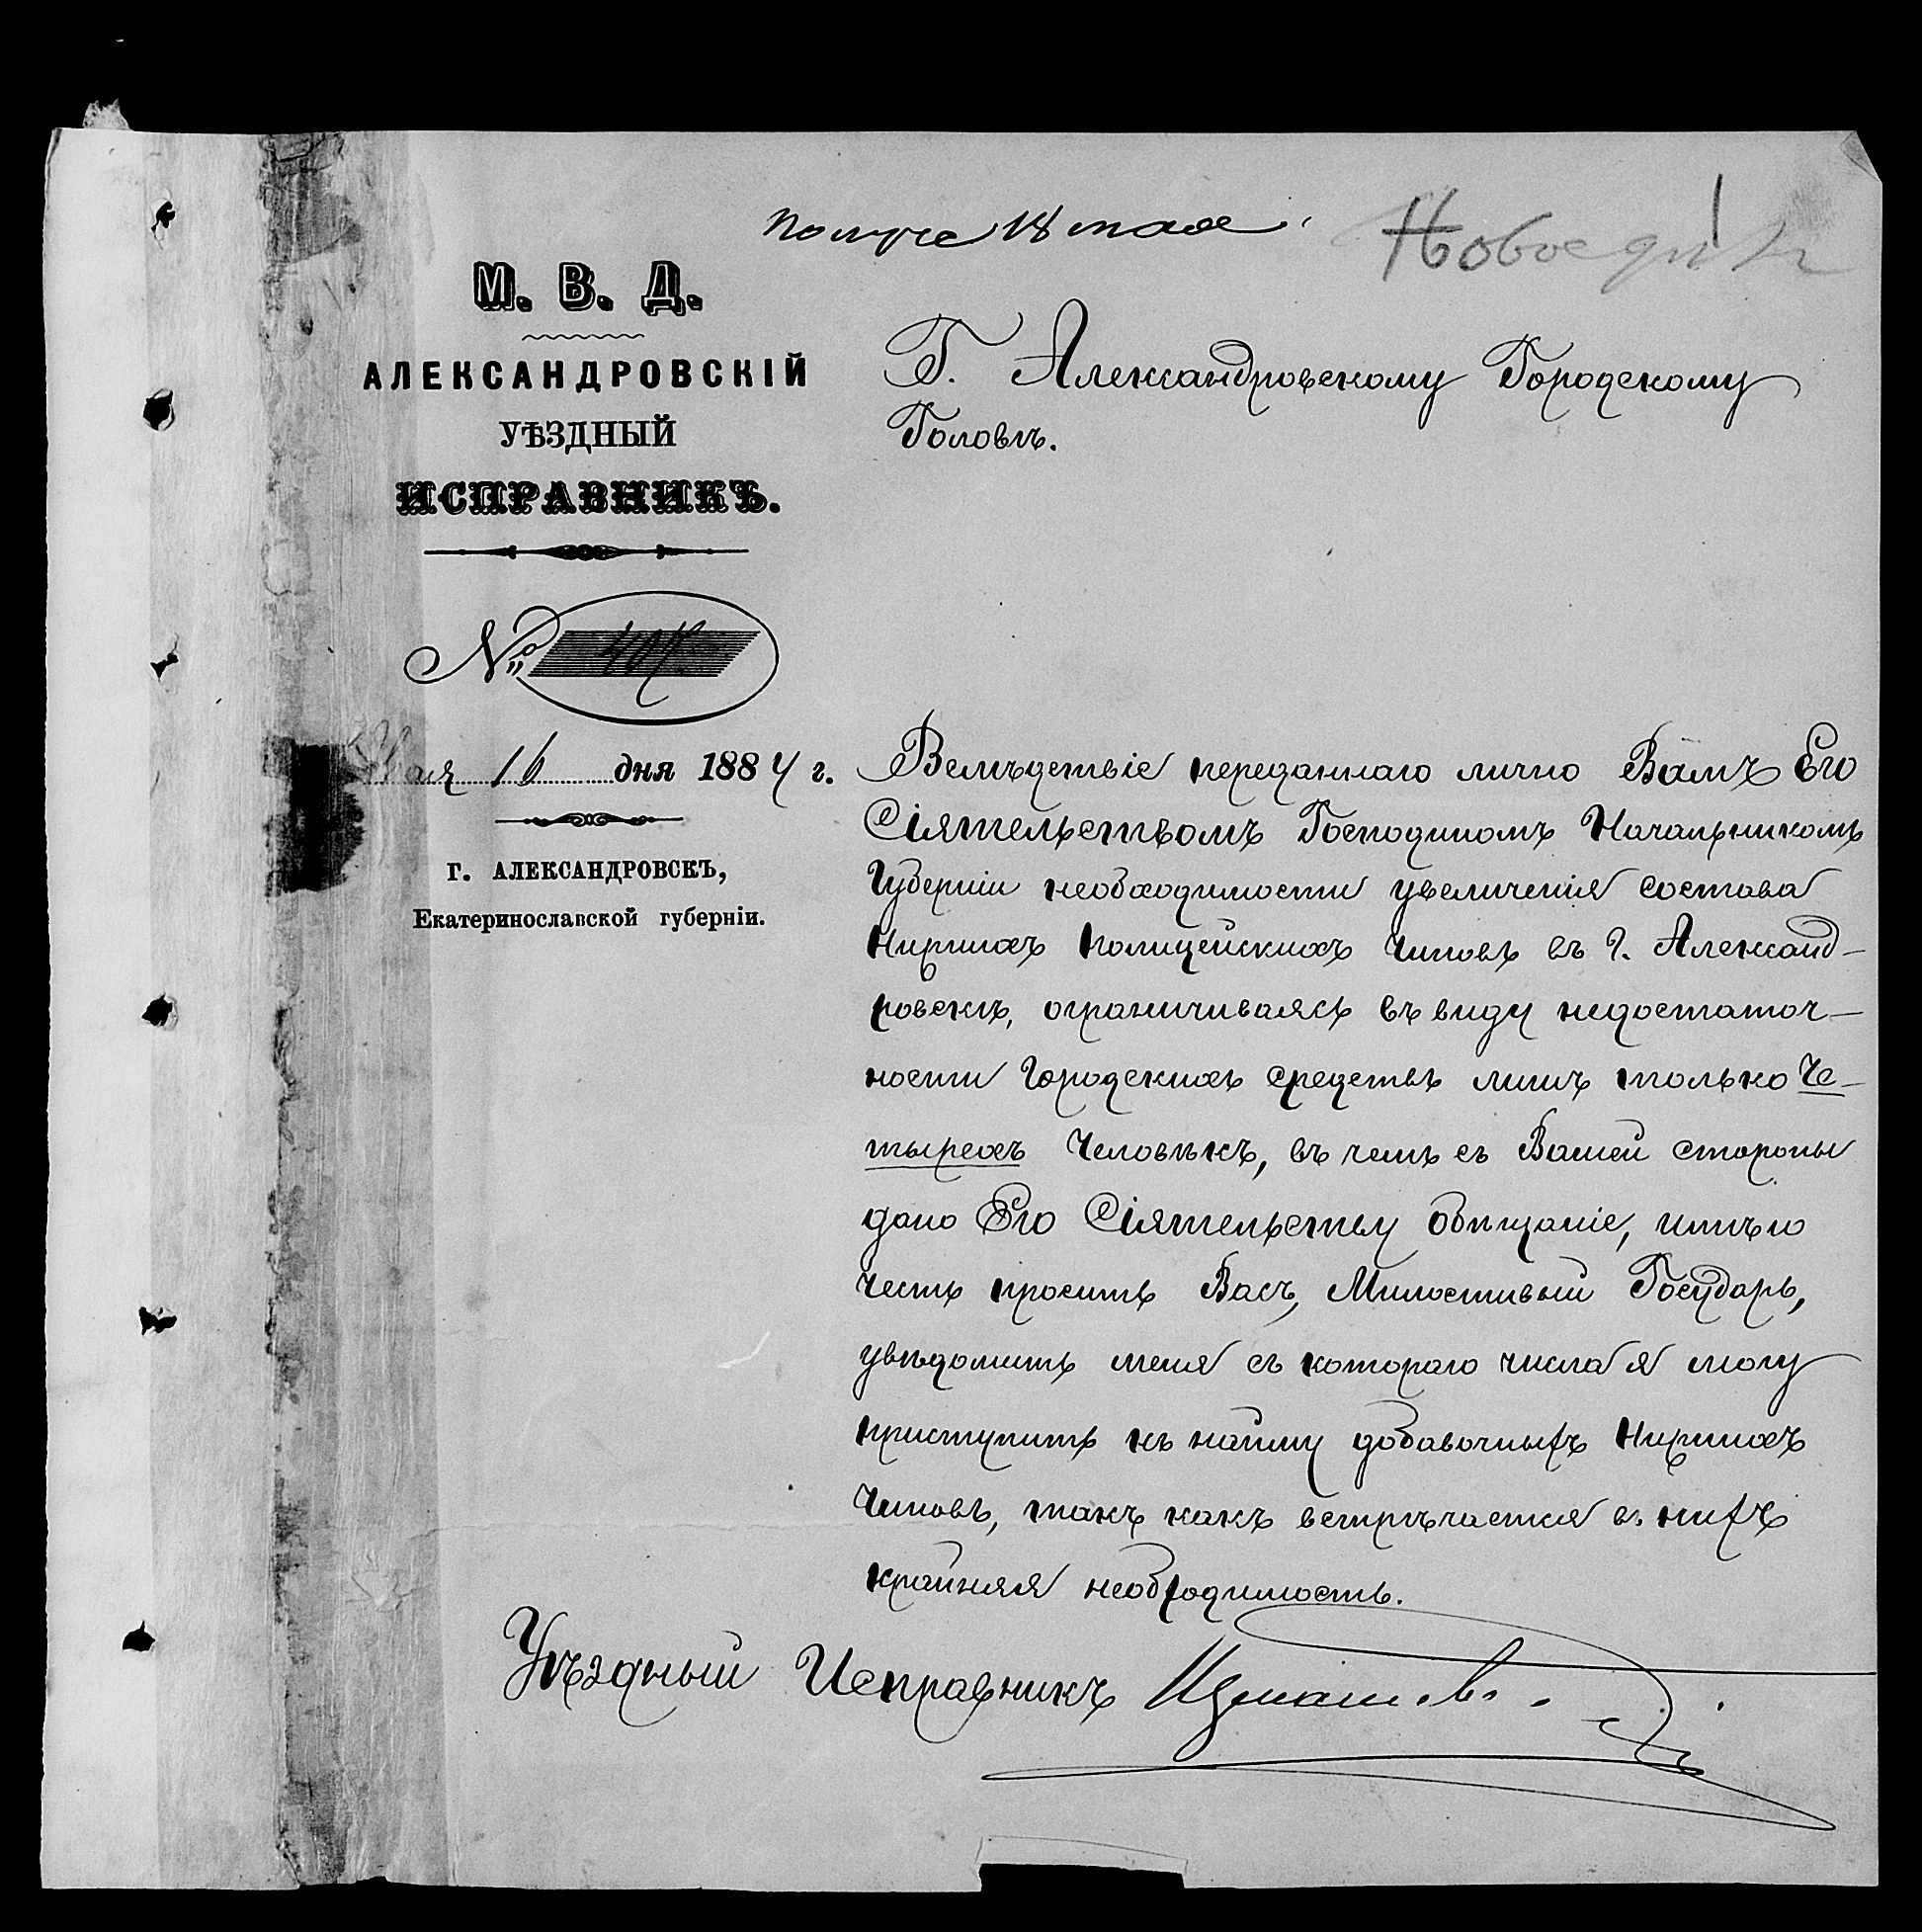 получе 18 мая
М. В. Д.
АЛЕКСАНДРОВСКІЙ
УѢЗДНЫЙ
ИСПРАВНИКЪ.
№ 407
Мая 16 дня 1884 г.
Г. АЛЕКСАНДРОВСКЪ,
Екатеринославской губерніи.
Г. Александровскому Городскому
Головѣ.
Вслѣдствіе переданнаго лично Вамъ Его
Сіятельствомъ Господиномъ Начальникомъ
Губерніи необходимости увеличенія состава
Нижнихъ Полицейскихъ Чиновъ въ г. Александ-
ровскѣ, ограничиваясь въ виду недостаточ-
ности Городскихъ средствъ лишь только Че-
тырехъ Человѣкъ, въ чемъ съ Вашей стороны
дано Его Сіятельству обѣщаніе, имѣю
честь просить Васъ, Милостивый Государь,
увѣдомить меня съ котораго числа я могу
приступить къ найму добавочныхъ Нижнихъ
Чиновъ, такъ какъ встрѣчается въ нихъ
крайняя необходимость.
Уѣздный Исправникъ